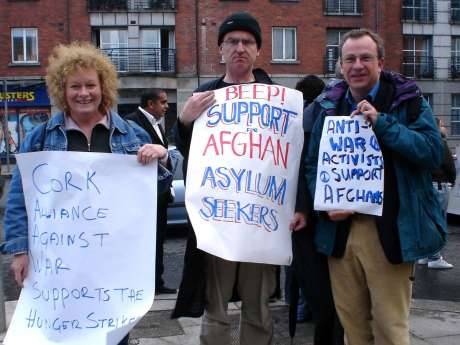 CORK
ALLIANCE
AGAINST
WAR
SUPPORTS THE
HUNGER STRIKE
BEEP!
SUPPORT
AFGHAN
ASYLUM
SEEKERS
ANTI-
WAR
ACTIVISTS
SUPPORT
AFGHANS